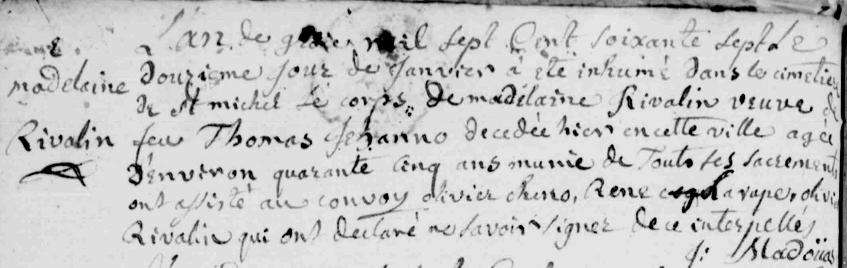 L'an de grace mil sept Cent soixante sept Le
madelaine Douzieme jour de Janvier à eté inhumé Dans le cimetiere
de St michel Le corps de madelaine Rivalin veuve de
Rivalin feu Thomas Jehanno decedée hier en cette ville agée
D'environ quarante Cinq ans munie de Touts ses sacrements
ont assisté au convoy olivier cheno, Rene olivier
Rivalin qui ont declaré ne savoir signer de ce interpellés